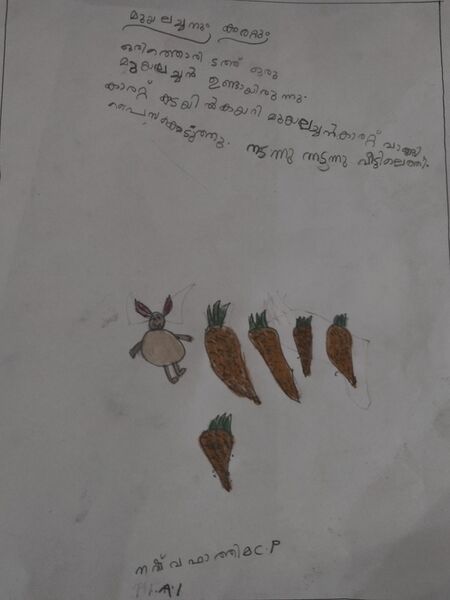 മുയലച്ചനും കാരറ്റും
ഒരിത്തൊരി ടത്ത് ഒരു
മുയലച്ചൻ ഉണ്ടായിരുന്നു.
കാരറ്റ് കടയിൽകയറി മുയലച്ചൻകാരറ്റ് വാങ്ങി
പൈസകൊടുത്തു. നടന്നു നടന്നു വീട്ടിലെത്തി.
നഷ് വ ഫാത്തിമ C.P
I.A.I